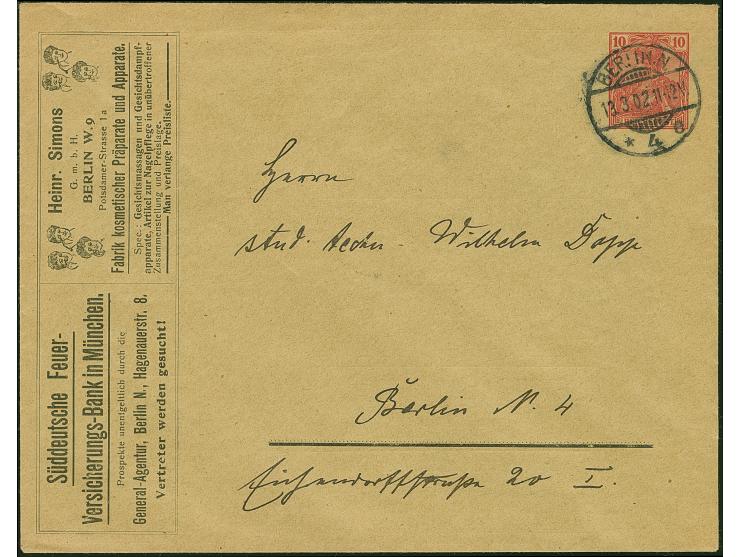 Heinr. Simons
G. m. b. H.
BERLIN W. 9
Potsdamer-Strasse 1a
Fabrik kosmetischer Präparate und Apparate.
Spec.: Gesichtsmassagen und Gesichtsdampf-
apparate, Artikel zur Nagelpflege in unübertroffener
Zusammenstellung und Preislage.
Man verlange Preisliste.
Süddeutsche Feuer-
Versicherungs-Bank in München.
Prospekte unentgeltlich durch die
General-Agentur, Berlin N., Hagenauerstr. 8.
Vertreter werden gesucht!
10 10
BERLIN.N.
3.02.11-12V.
* 4 e
Herrn
stud. techn. Wilhelm Doppe
Berlin N. 4
Eichendorffstraße 20 I.